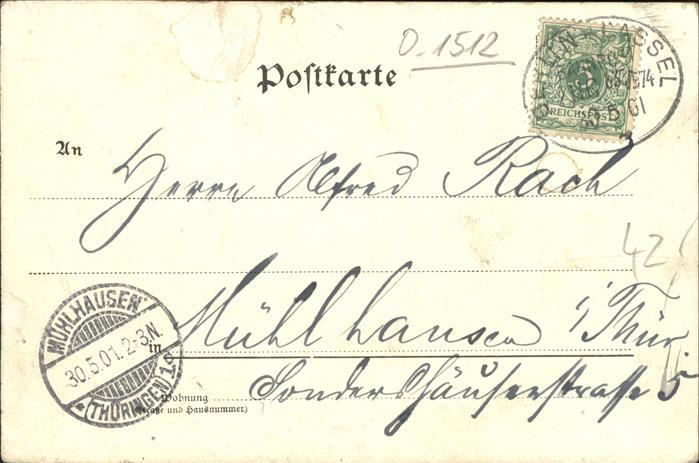 O.1512
Postkarte
CASSEL
5
REICHSPOST
30 5 01
An Herrn Alfred Rach
42
MÜHLHAUSEN
30.5.01. 2-3N.
*(THÜRINGEN) 1*
in Mühlhausen i/Thür.
Wohnung Sondershäuserstrasse 5
(Straße und Hausnummer)